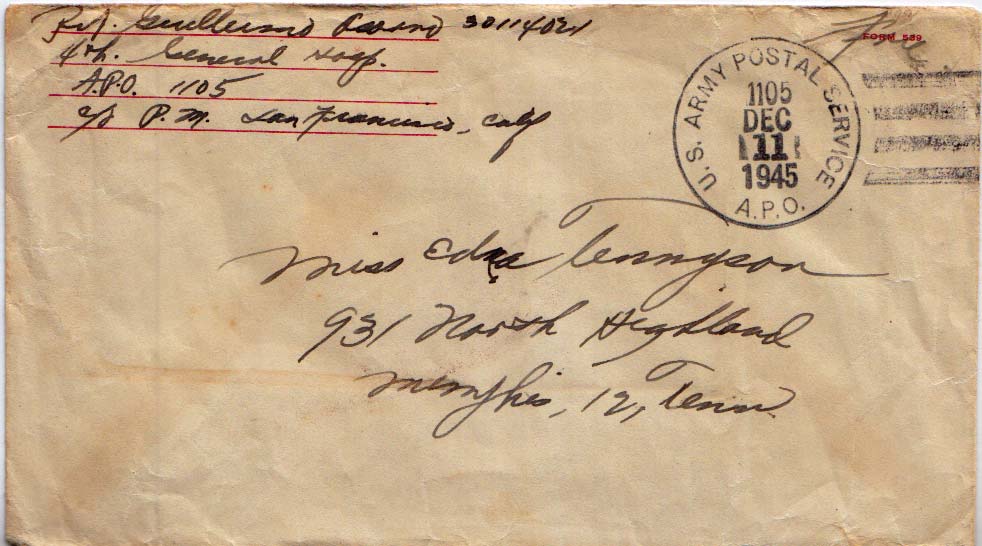 Pvt. Guillermo 30114021
4th. General Hosp.
A.P.O. 1105
c/o P.M. San Francisco, Calif
Free
FORM 539
U.S. ARMY POSTAL SERVICE
1105
DEC
11
1945
A.P.O.
Miss Edna Tennyson
931 North Highland
Memphis, 12, Tenn.